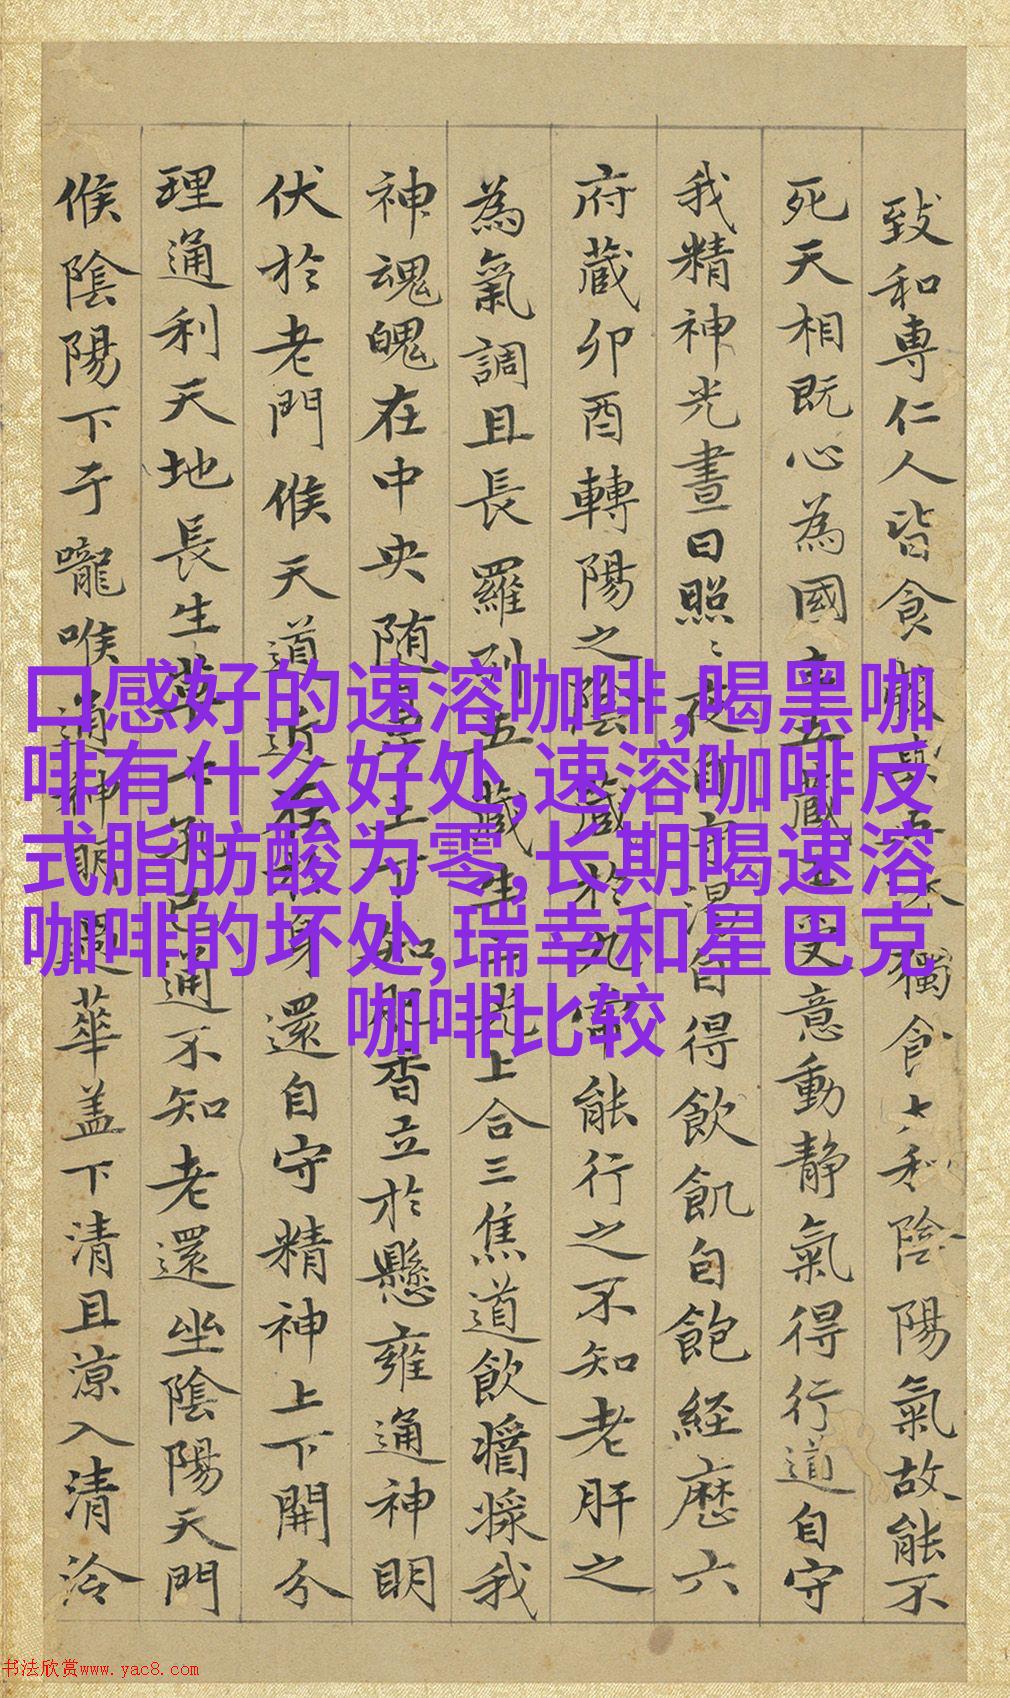 致和専仁人皆食
獨食太和陰陽氣故能不
死天相既心為國
受意動静氣得行道自守
我精神光晝日照〻夜自守渴自得飲飢自飽経歴六
府蔵卯酉轉陽之陰蔵於九宮能行之不知老肝之
為氣調且長羅列五蔵生三光上合三焦道飲醬漿我
神魂魄在中央随
知肥香立於懸雍通神明
伏於老門候天道近在
身還自守精神上下開分
理通利天地長生草
七孔已通不知老還坐陰陽天門
候陰陽下于嚨喉通神明過華盖下清且涼入清泠
口感好的速溶咖啡,喝黑咖
啡有什么好处,速溶咖啡反
式脂肪酸为零,长期喝速溶
咖啡的坏处,瑞幸和星巴克
咖啡比较
书法欣赏www.yac8.com